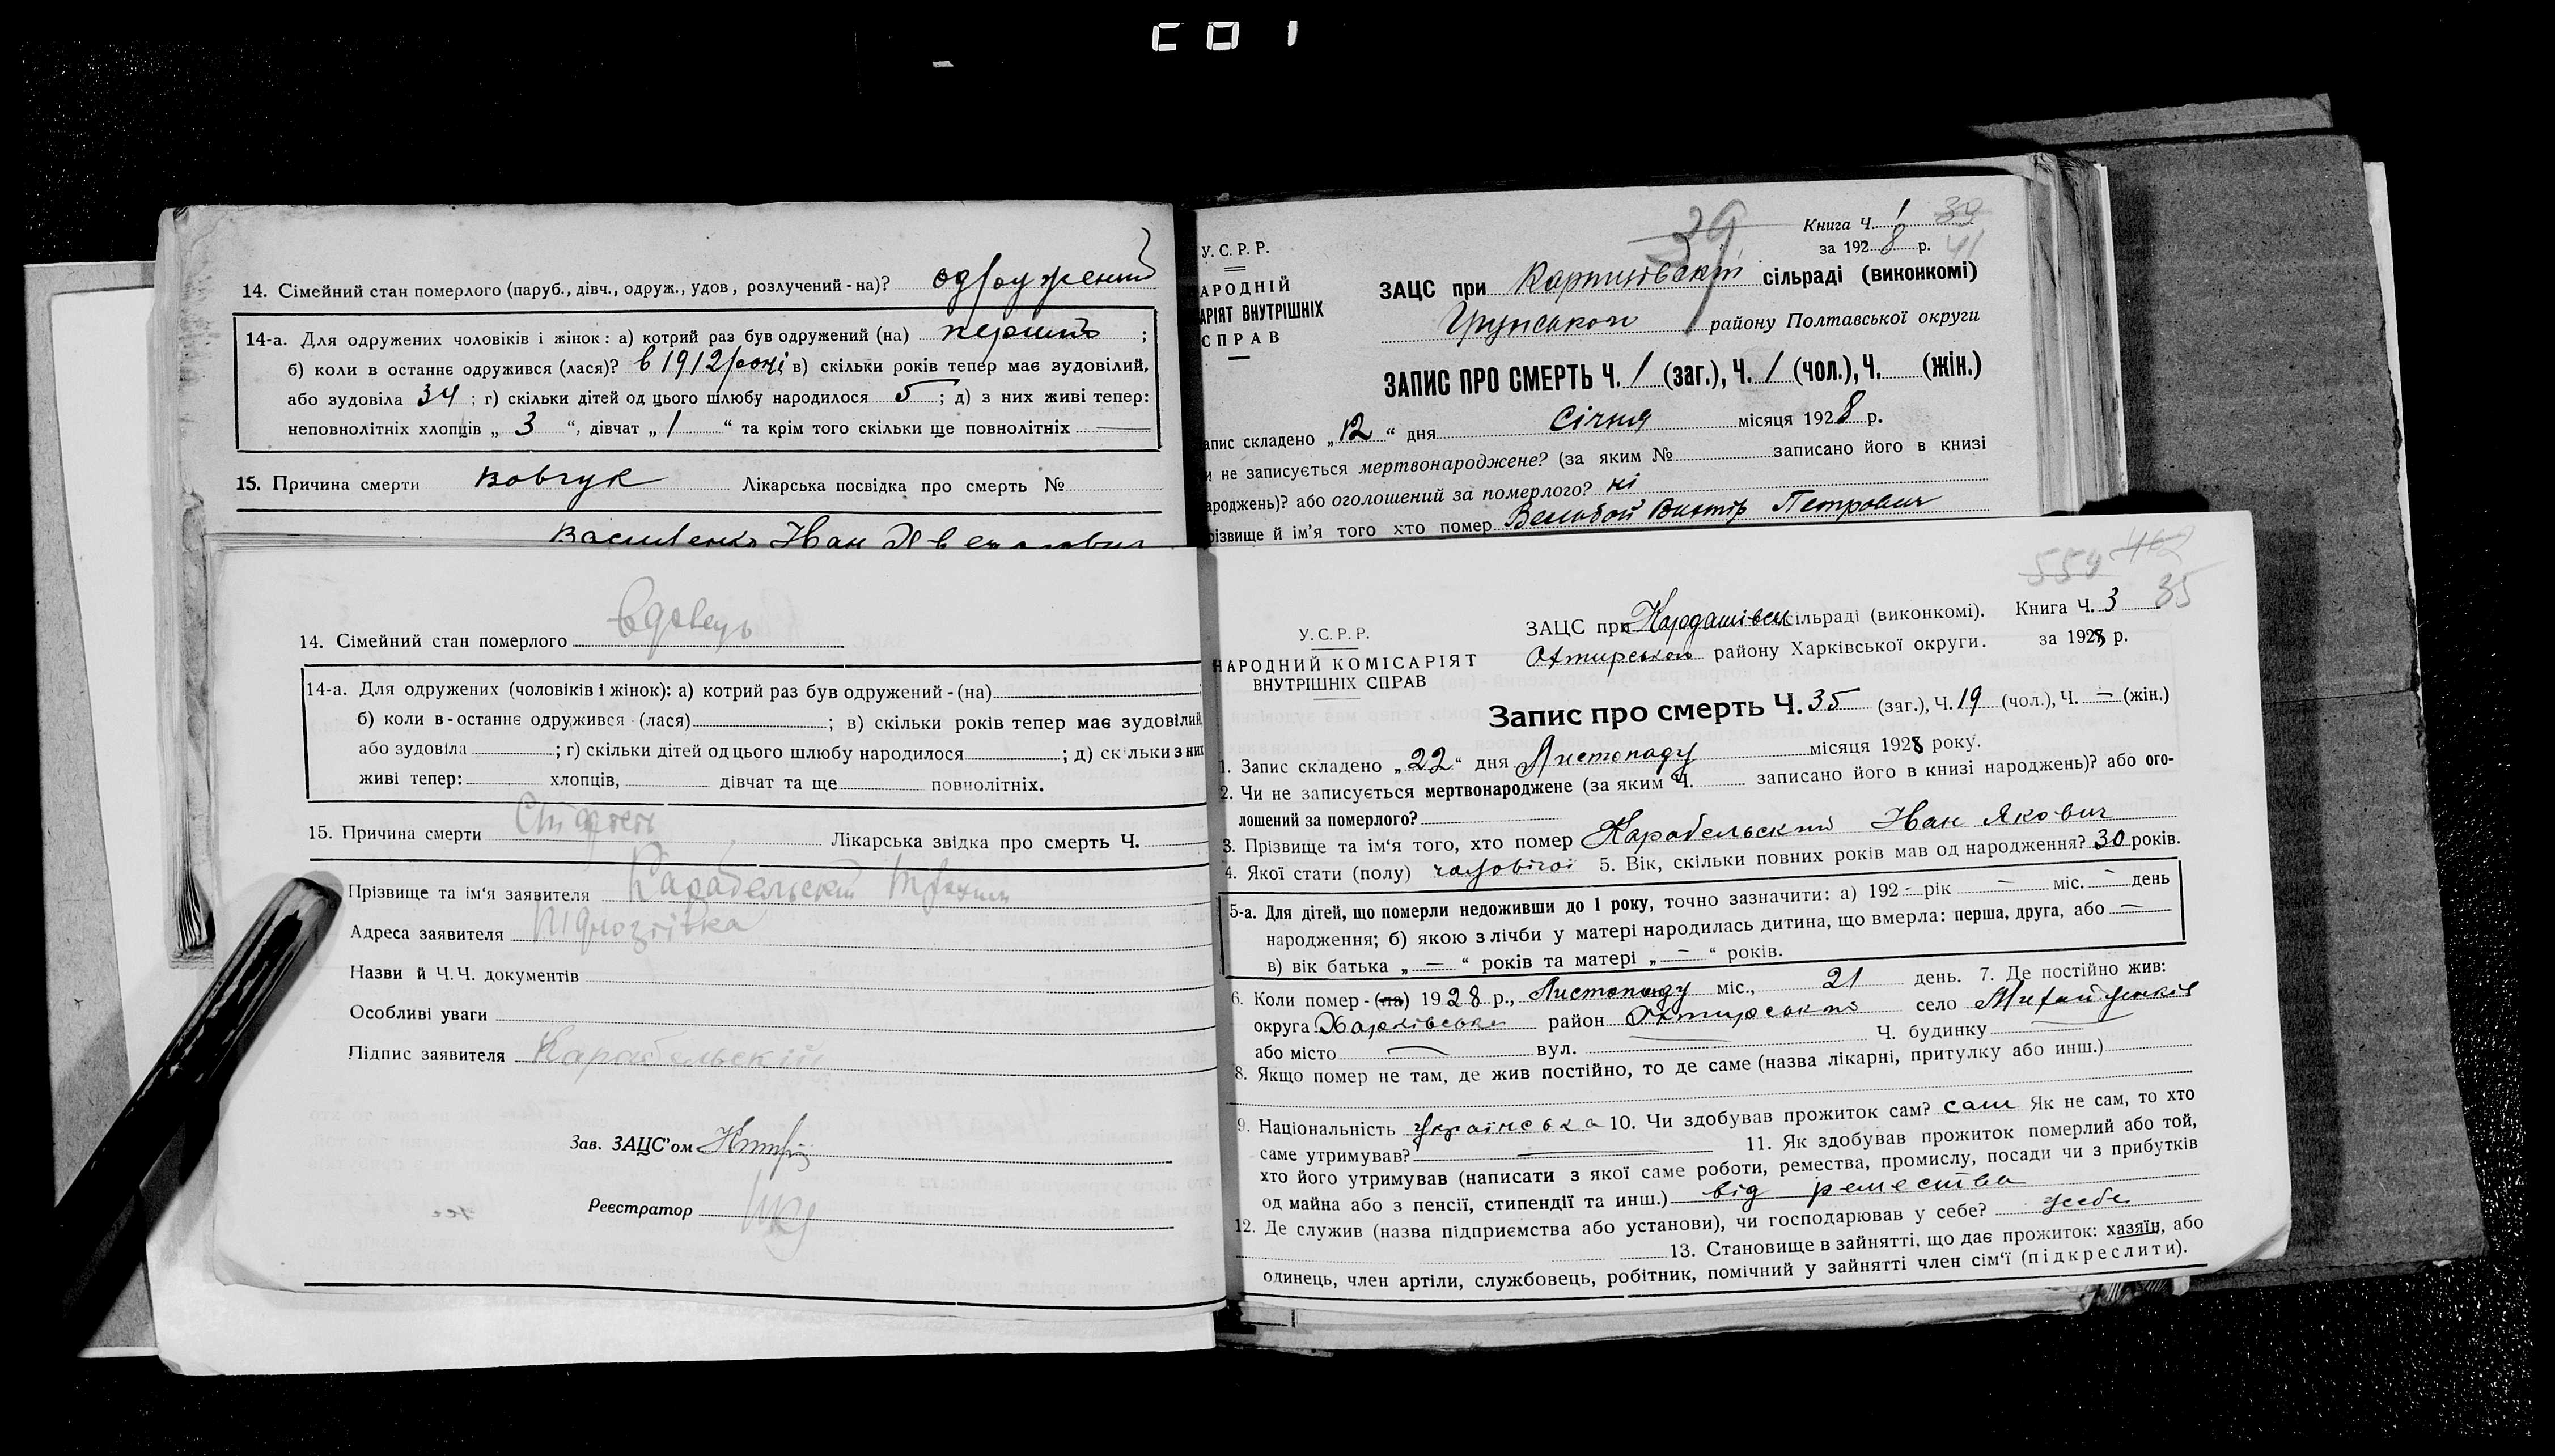 14. Сімейний стан померлого (паруб., дівч., одруж., удов, розлучений-на)? одружений
14-а. Для одружених чоловіків і жінок: а) котрий раз був одружений (на) перший ;
б) коли в останнє одружився (лася)? в 1912 році в) скільки років тепер має зудовілий,
або зудовіла 34 ; г) скільки дітей од цього шлюбу народилося 5 ; д) з них живі тепер:
неповнолітніх хлопців „ 3 “, дівчат „ 1 “ та крім того скільки ще повнолітніх —
15. Причина смерти Лікарська посвідка про смерть №
Василенко Иван
39
Книга Ч. 1 39
за 1928 р. 41
У.С.Р.Р.
АРОДНІЙ
АРІЯТ ВНУТРІШНІХ
СПРАВ
ЗАЦС при сільраді (виконкомі)
Грунський району Полтавської округи
ЗАПИС ПРО СМЕРТЬ Ч. 1 (заг.), Ч. 1 (чол.), Ч. (жін.)
апис складено „12“ дня Січня місяця 1928 р.
и не записується мертвонароджене? (за яким № записано його в книзі
ароджень)? або оголошений за померлого? ні
різвище й ім’я того хто помер Петрович
14. Сімейний стан померлого вдовець
14-а. Для одружених (чоловіків і жінок): а) котрий раз був одружений-(на)
б) коли в-останнє одружився-(лася) ; в) скільки років тепер має зудовілий
або зудовіла ; г) скільки дітей од цього шлюбу народилося ; д) скільки з них
живі тепер: хлопців, дівчат та ще повнолітніх.
15. Причина смерти Лікарська звідка про смерть Ч.
Прізвище та ім‘я заявителя Карабельский
Адреса заявителя
Назви й Ч.Ч. документів
Особливі уваги
Підпис заявителя Карабельский
Зав. ЗАЦС’ом
Реєстратор
559 35
У.С.Р.Р.
НАРОДНИЙ КОМІСАРІЯТ
ВНУТРІШНІХ СПРАВ
ЗАЦС при Кардашівск сільраді (виконкомі). Книга Ч. 3
Охтирськой району Харківської округи. за 1928 р.
Запис про смерть Ч. 35 (заг.), Ч. 19 (чол.), Ч. — (жін.)
1. Запис складено „22“ дня Листопаду місяця 1928 року.
2. Чи не записується мертвонароджене (за яким Ч. записано його в книзі народжень)? або ого-
лошений за померлого?
3. Прізвище та ім‘я того, хто помер Карабельский Иван Якович
4. Якої стати (полу) чоловічої 5. Вік, скільки повних років мав од народження? 30 років.
5-а. Для дітей, що померли недоживши до 1 року, точно зазначити: а) 192 - рік — міс. — день
народження; б) якою з лічби у матері народилась дитина, що вмерла: перша, друга, або —
в) вік батька „ — “ років та матері „ — “ років.
6. Коли помер-(ла) 1928 р., Листопаду міс., 21 день. 7. Де постійно жив:
округа Харківська район Охтирський село
або місто — вул. — Ч. будинку —
8. Якщо помер не там, де жив постійно, то де саме (назва лікарні, притулку або инш.)
9. Національність українська 10. Чи здобував прожиток сам? сам Як не сам, то хто
саме утримував? — 11. Як здобував прожиток померлий або той,
хто його утримував (написати з якої саме роботи, ремества, промислу, посади чи з прибутків
од майна або з пенсії, стипендії та инш.) від ремества
12. Де служив (назва підприємства або установи), чи господарював у себе? у себе
13. Становище в зайнятті, що дає прожиток: хазяїн, або
одинець, член артіли, службовець, робітник, помічний у зайнятті член сім‘ї (підкреслити).